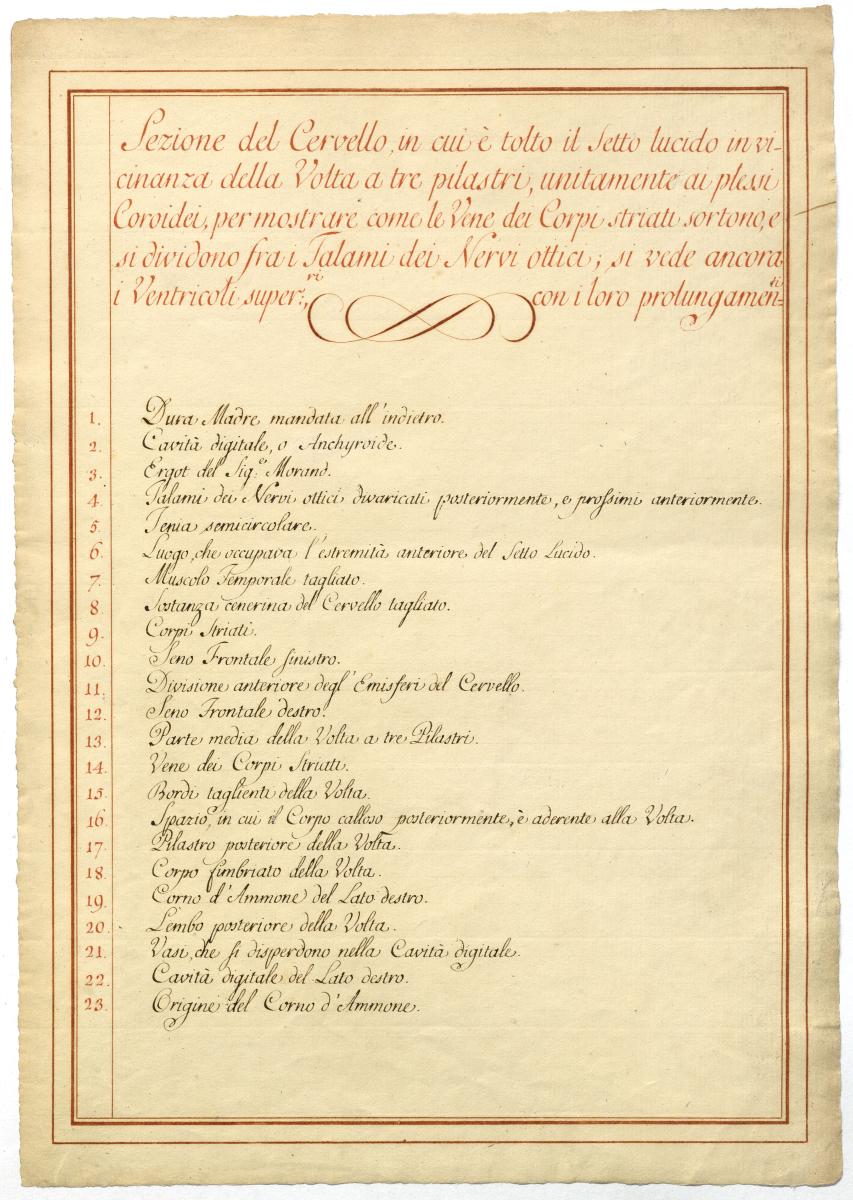 Sezione del Cervello, in cui è tolto il Setto lucido in vi-
cinanza della Volta a tre pilastri, unitamente ai plessi
Coroidei, per mostrare come le Vene dei Corpi striati sortono, e
si dividono fra i Talami dei Nervi ottici; si vede ancora
i Ventricoli super.ri, con i loro prolungamen=ti
1. Dura Madre mandata all'indietro.
2. Cavità digitale, o Anchyroide.
3. Ergot del Sig.e Morand.
4. Talami dei Nervi ottici divaricati posteriormente, e prossimi anteriormente.
5. Tenia semicircolare.
6. Luogo, che occupava l'estremità anteriore del Setto Lucido.
7. Muscolo Temporale tagliato.
8. Sostanza cenerina del Cervello tagliato.
9. Corpi Striati.
10. Seno Frontale sinistro.
11. Divisione anteriore degl'Emisferi del Cervello.
12. Seno Frontale destro.
13. Parte media della Volta a tre Pilastri.
14. Vene dei Corpi Striati.
15. Bordi taglienti della Volta.
16. Spazio, in cui il Corpo calloso posteriormente, è aderente alla Volta.
17. Pilastro posteriore della Volta.
18. Corpo fimbriato della Volta.
19. Corno d'Ammone del Lato destro.
20. Lembo posteriore della Volta.
21. Vasi, che si disperdono nella Cavità digitale.
22. Cavità digitale del Lato destro.
23. Origine del Corno d'Ammone.